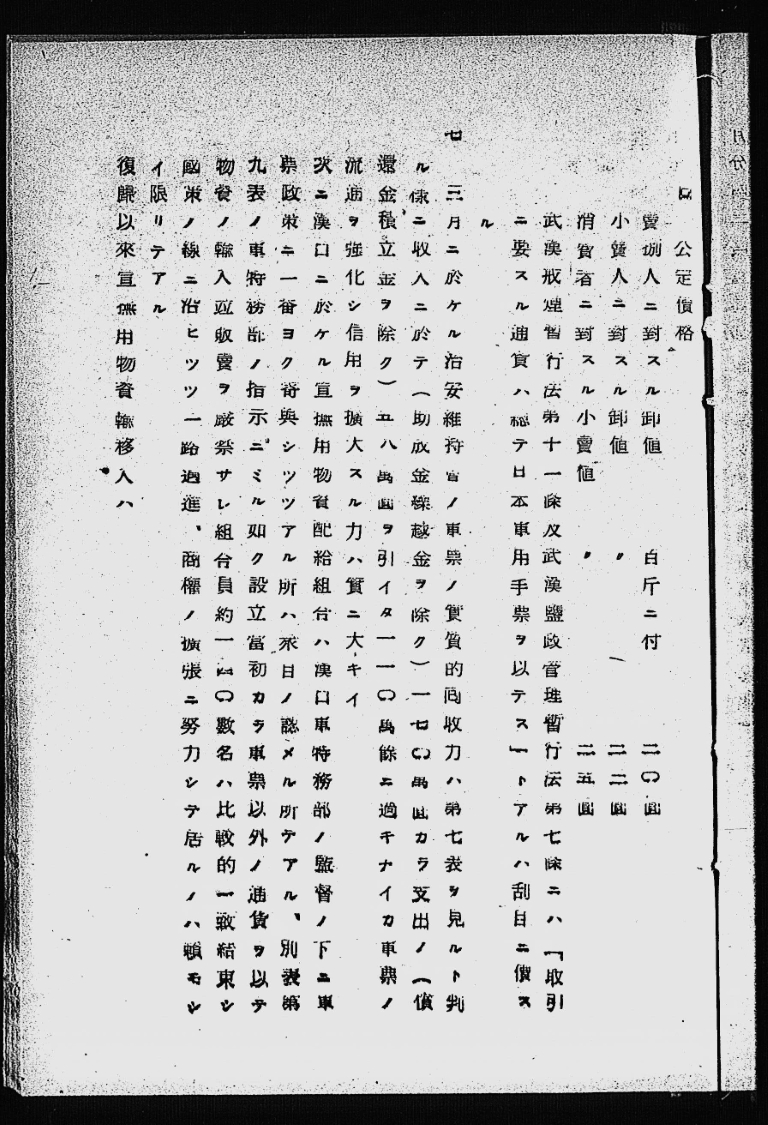 ロ 公定價格
賣捌人ニ對スル卸値 百斤ニ付 二〇圓
小賣人ニ對スル卸値 〃 二二圓
消費者ニ對スル小賣値 〃 二五圓
武漢戒煙暫行法第十一條及武漢鹽政管理暫行法第七條ニハ「取引
ニ要スル通貨ハ總テ日本軍用手票ヲ以テス」トアルハ刮目ニ價ス
ル
七 三月ニ於ケル治安維持會ノ軍票ノ實質的回收力ハ第七表ヲ見ルト判
ル樣ニ收入ニ於テ(助成金繰越金ヲ除ク)一七〇萬圓カラ支出ノ(償
還金積立金ヲ除ク)五八萬圓ヲ引イタ一一〇萬餘ニ過キナイカ軍票ノ
流通ヲ強化シ信用ヲ擴大スル力ハ實ニ大キイ
次ニ漢口ニ於ケル宣撫用物資配給組合ハ漢口軍特務部ノ監督ノ下ニ軍
票政策ニ一番ヨク寄與シツツアル所ハ衆目ノ認メル所デアル、別表第
九表ノ軍特務部ノ指示ニミル如ク設立當初カラ軍票以外ノ通貨ヲ以テ
物資ノ輸入並販賣ヲ嚴禁サレ組合員約一四〇數名ハ比較的一致結束シ
國策ノ線ニ沿ヒツツ一路邁進、商權ノ擴張ニ努力シテ居ルノハ頼モシ
イ限リデアル
復歸以來宣撫用物資輸移入ハ